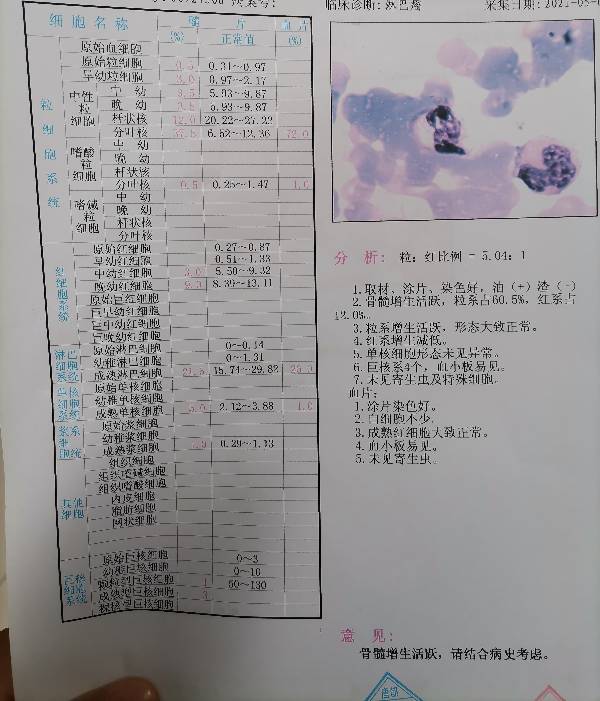 临床诊断: 淋巴瘤
细胞名称 髓片 血片
(%) 正常值 (%)
原始血细胞
原始粒细胞 0.5 0.31~0.97
早幼粒细胞 3.0 0.97~2.17
粒细胞系统
中性粒细胞
中幼 5.93~9.87
晚幼 5.93~9.87
杆状核 12.0 20.22~27.22
分叶核 6.52~12.36 72.0
嗜酸粒细胞
中幼
晚幼
杆状核
分叶核 0.5 0.25~1.47 1.0
嗜碱粒细胞
中幼
晚幼
杆状核
分叶核
红细胞系统
原始红细胞 0.27~0.87
早幼红细胞 0.51~1.33
中幼红细胞 3.0 5.50~9.32
晚幼红细胞 9.0 8.39~13.11
原始巨红细胞
巨早幼红细胞
巨中幼红细胞
巨晚幼红细胞
淋巴细胞系统
原始淋巴细胞 0~0.14
幼稚淋巴细胞 0~1.31
成熟淋巴细胞 15.74~29.82
单核细胞系统
原始单核细胞
幼稚单核细胞
成熟单核细胞 5.0 2.12~3.88 1.0
浆系细胞系统
原始浆细胞
幼稚浆细胞
成熟浆细胞 0.29~1.13
其他细胞
组织细胞
组织嗜碱细胞
组织嗜酸细胞
内皮细胞
脂肪细胞
网状细胞
巨核细胞系统
原始巨核细胞 0~3
幼稚巨核细胞 0~10
颗粒型巨核细胞 1 50~130
成熟型巨核细胞 3
裸核型巨核细胞
分 析: 粒:红比例 = 5.04:1
1.取材、涂片、染色好,油(+)渣(-)
2.骨髓增生活跃,粒系占60.5%,红系占
12.0%。
3.粒系增生活跃,形态大致正常。
4.红系增生减低。
5.单核细胞形态未见异常。
6.巨核系4个,血小板易见。
7.未见寄生虫及特殊细胞。
血片:
1.涂片染色好。
2.白细胞不少。
3.成熟红细胞大致正常。
4.血小板易见。
5.未见寄生虫。
意 见:
骨髓增生活跃,请结合病史考虑。